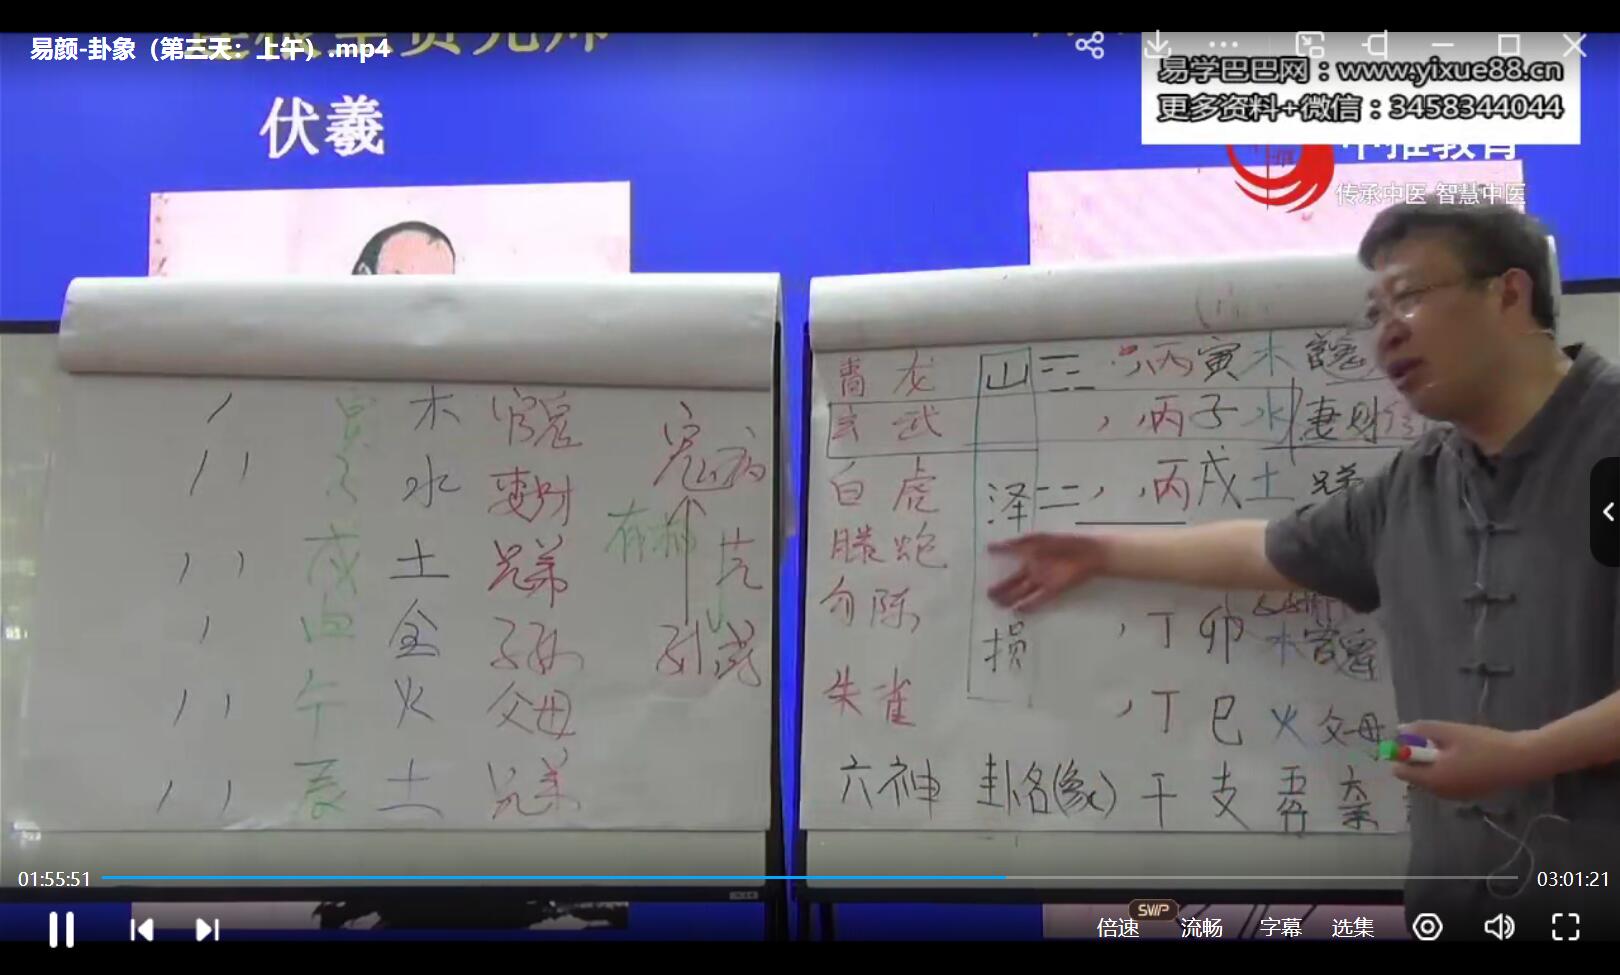 易颜-卦象（第三天：上午）.mp4
易学巴巴网：www.yixue88.cn
更多资料+微信：3458344044
伏羲
传承中医 智慧中医
木 官鬼
水 妻财
戌 土 兄弟
金 子孙
午 火 父母
辰 土 兄弟
鬼 病
青龙 山 丙寅木 官鬼
玄武 丙子水 妻财
白虎 泽 丙戌土 兄弟
勾陈 损 丁卯木 官鬼
朱雀 丁巳火 父母
六神 卦名(象) 干 支 五行 六亲
01:55:51
03:01:21
倍速
SVIP
流畅
字幕
选集